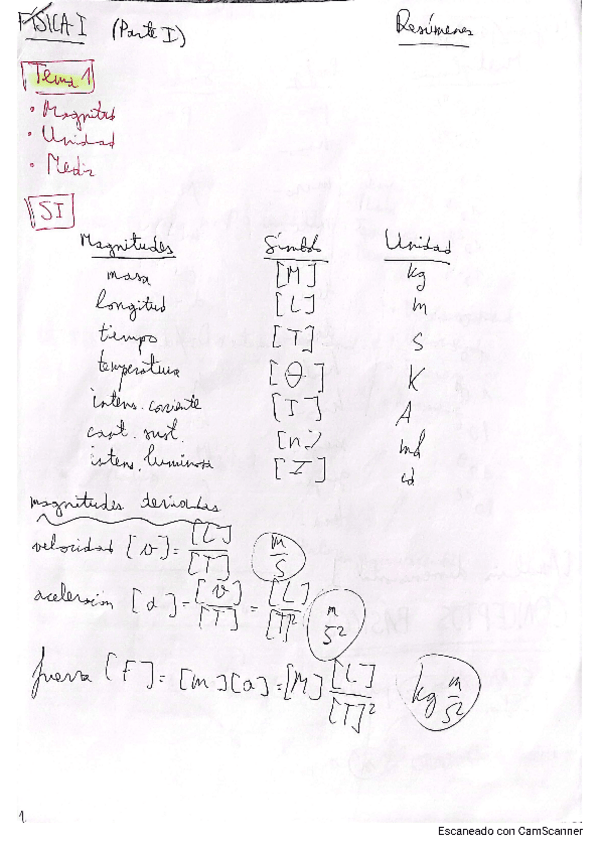 FÍSICA I (Parte I) Resúmenes
Tema 1
• Magnitud
• Unidad
• Medir
SI
Magnitudes Símbolo Unidad
masa [M] kg
longitud [L] m
tiempo [T] s
temperatura [θ] K
intens. corriente [I] A
cant. sust. [n] mol
intens. luminosa [I] cd
magnitudes derivadas
velocidad [v] = [L]/[T] m/s
aceleración [a] = [v]/[T] = [L]/[T]² m/s²
fuerza [F] = [m][a] = [M] [L]/[T]² kg m/s²
1
Escaneado con CamScanner